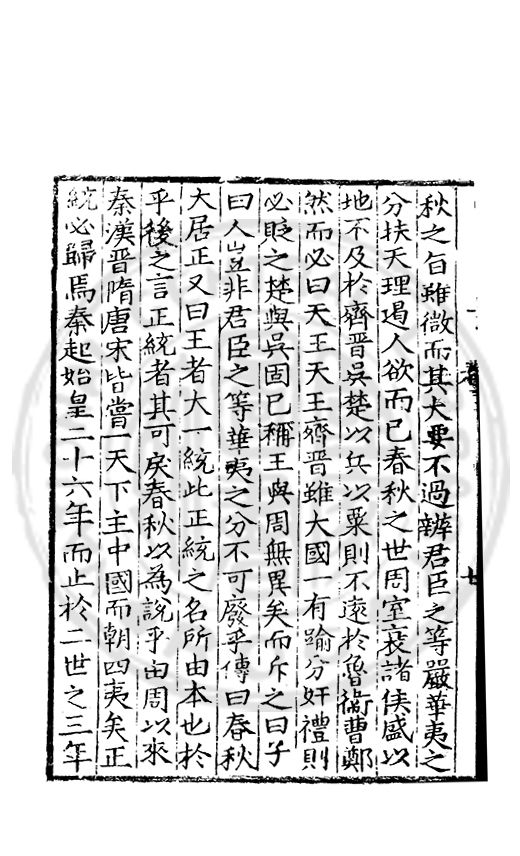 秋之旨雖微而其大要不過辨君臣之等嚴華夷之
分扶天理遏人欲而已春秋之世周室衰諸侯盛以
地不及於齊晋吳楚以兵以粟則不逮於魯衛曹鄭
然而必曰天王天王齊晋雖大國一有踰分奸禮則
必貶之楚與吳固已稱王與周無異矣而斥之曰子
曰人豈非君臣之等華夷之分不可廢乎傳曰春秋
大居正又曰王者大一統此正統之名所由本也於
乎後之言正統者其可戾春秋以為說乎由周以來
秦漢晋隋唐宋皆嘗一天下主中國而朝四夷矣正
統必歸焉秦起始皇二十六年而止於二世之三年